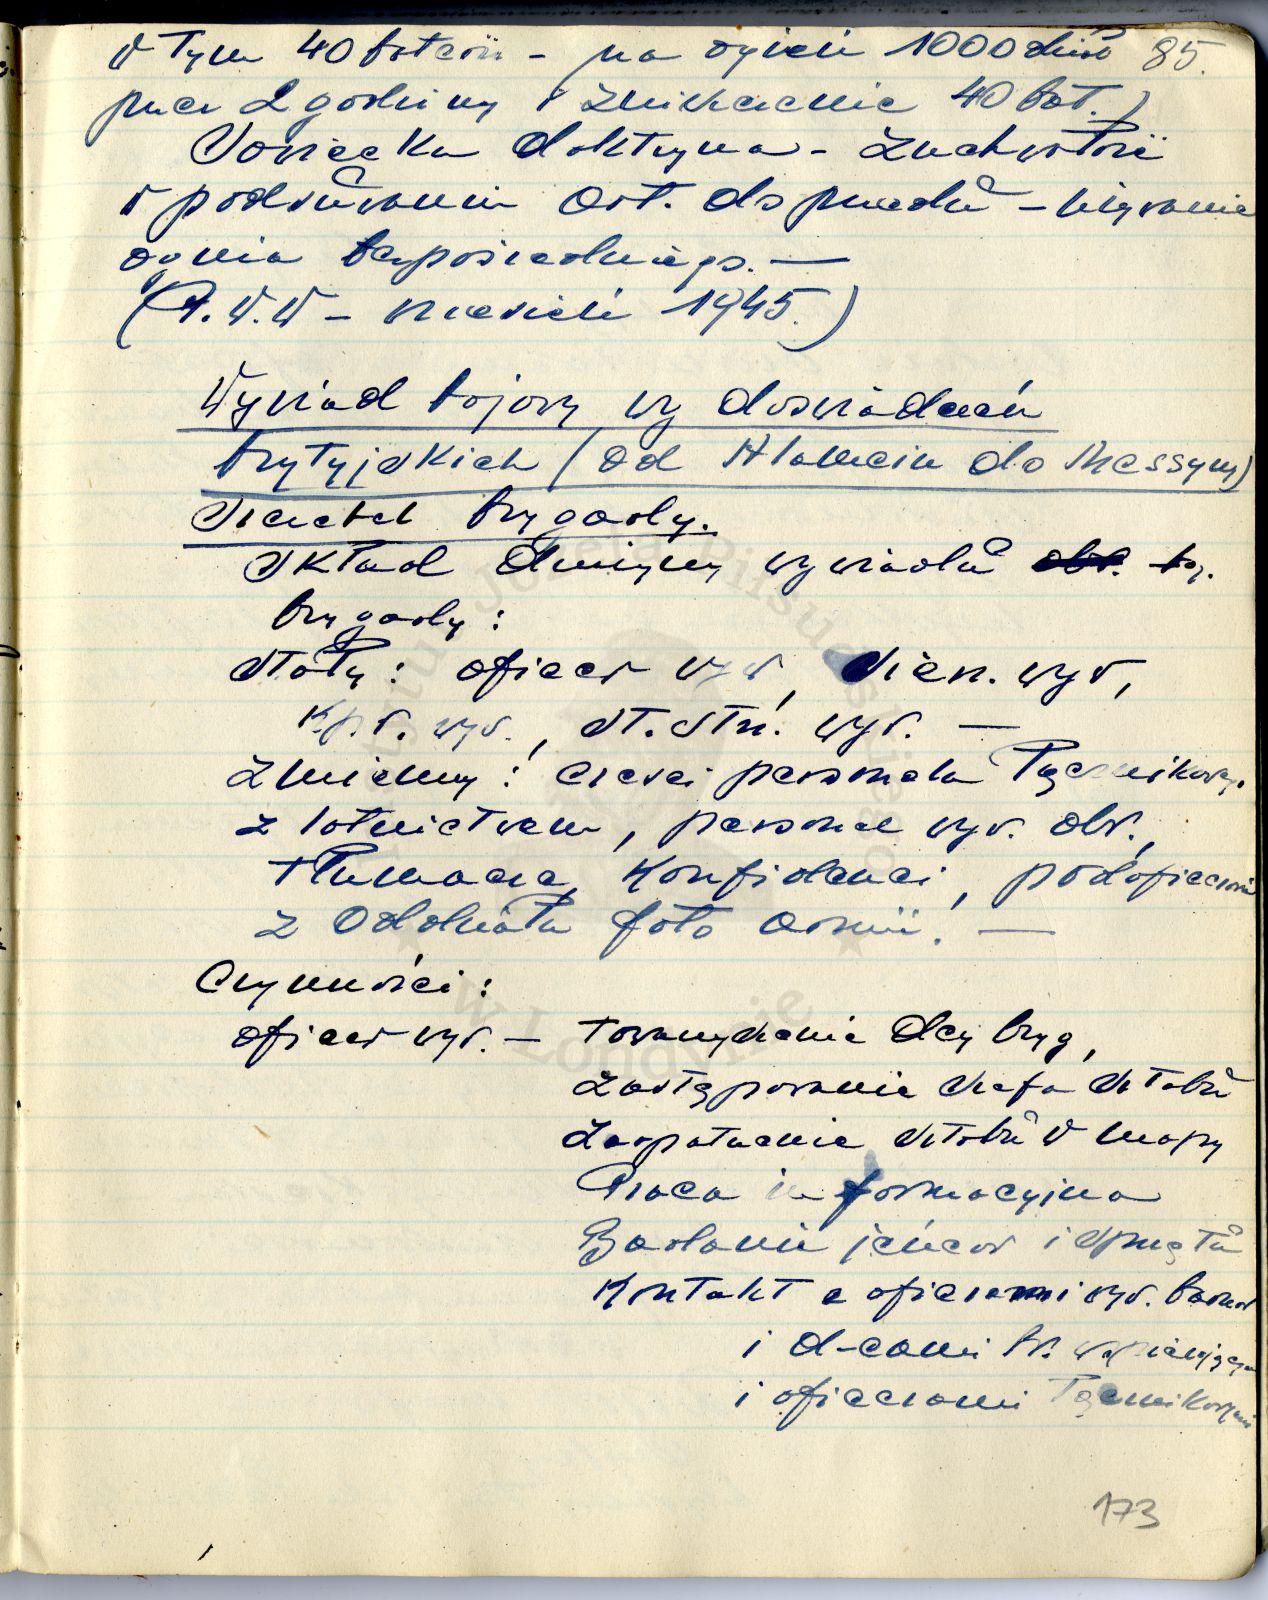 w tym 40 baterii - na ogień 1000 dział 85.
przez 2 godziny i zniszczenie 40 bat.)
Sowiecka doktryna - zuchwałość
w podsuwaniu art. do przodu - używanie
ognia bezpośredniego. —
(P.W.W - wrzesień 1945.)
Wywiad bojowy wg doświadczeń
brytyjskich (od Alamein do Messyny)
Szczebel brygady.
Skład drużyny wywiadu obs. bryg.
brygady:
Stały: oficer wyw, sierż. wyw,
kpr. wyw., st. strz. wyw. —
Zmienny: części personelu łącznikowego
z lotnictwem, personel wyw. obs.,
tłumacze, konfidenci, podoficerowie
z oddziału foto armii. —
Czynności:
oficer wyw. — towarzyszenie dcy bryg,
zastępowanie szefa sztabu
zaopatrzenie sztabu w mapy
Praca informacyjna
Badanie jeńców i sprzętu
Kontakt z oficerami wyw. baonów
i d-cami br. wspierających
i oficerami łącznikowymi
173
Instytutu Józefa Piłsudskiego
w Londynie